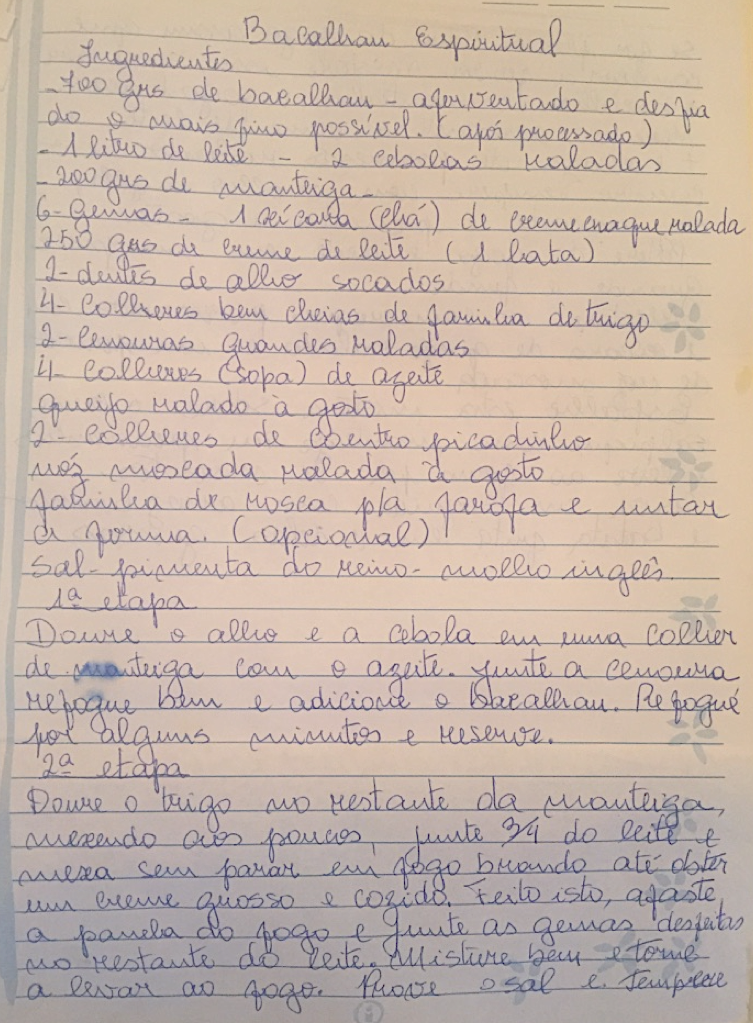 Bacalhau Espiritual
Ingredientes
-700 grs de bacalhau - aferventado e desfia
do o mais fino possível. (após processado)
- 1 litro de leite - 2 cebolas raladas
- 200 grs de manteiga -
6- gemas - 1 xícara (chá) de creme craque ralada
250 grs de creme de leite (1 lata)
2- dentes de alho socados
4- colheres bem cheias de farinha de trigo
2- cenouras grandes raladas
4- colheres (sopa) de azeite
queijo ralado à gosto
2- colheres de coentro picadinho
nóz moscada ralada à gosto
farinha de rosca p/a farofa e untar
a forma. (opcional)
Sal - pimenta do reino - molho inglês.
1ª etapa
Doure o alho e a cebola em uma colher
de manteiga com o azeite. Junte a cenoura
refogue bem e adicione o bacalhau. Refogue
por alguns minutos e reserve.
2ª etapa
Doure o trigo no restante da manteiga,
mexendo aos poucos, junte 3/4 do leite e
mexa sem parar em fogo brando até obter
um creme grosso e cozido. Feito isto, afaste
a panela do fogo e junte as gemas desfeitas
no restante do leite. Misture bem e torne
a levar ao fogo. Prove o sal e tempere